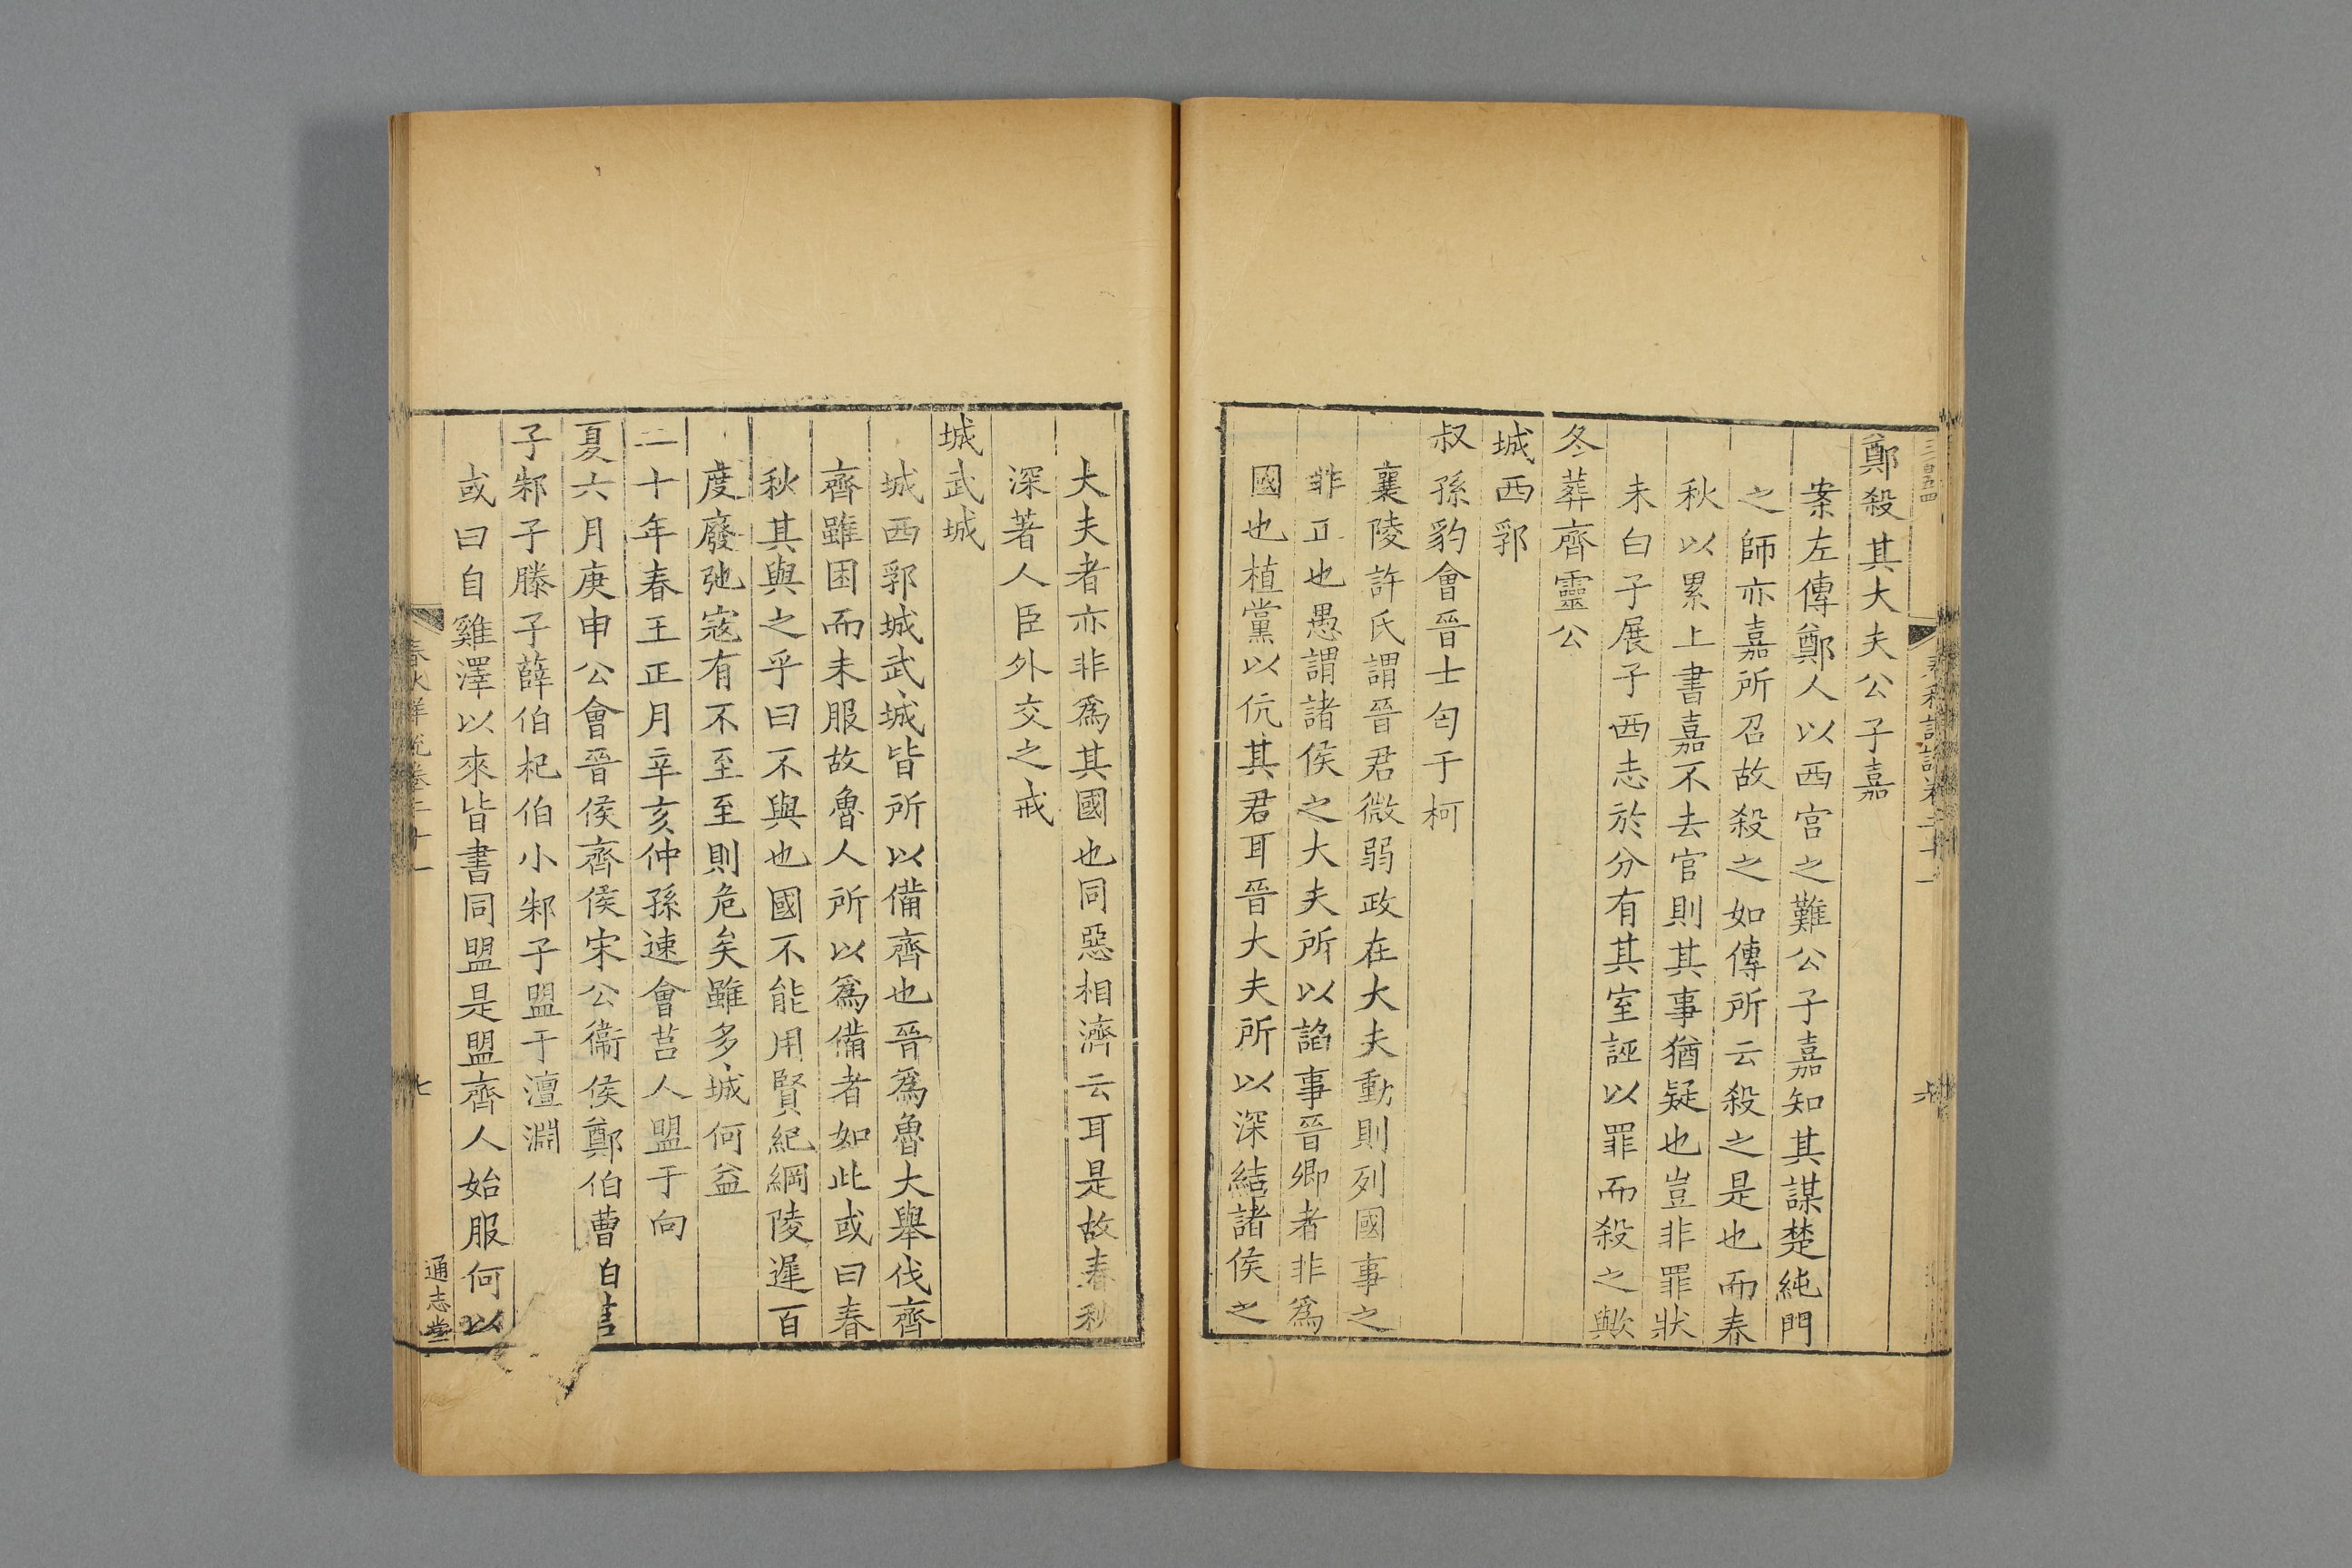 三百五四
鄭殺其大夫公子嘉
案左傳鄭人以西宮之難公子嘉知其謀楚純門
之師亦嘉所召故殺之如傳所云殺之是也而春
秋以累上書嘉不去官則其事猶疑也豈非罪狀
未白子展子西志於分有其室誣以罪而殺之歟
冬葬齊靈公
城西郛
叔孫豹會晉士匄于柯
襄陵許氏謂晉君微弱政在大夫動則列國事之
非正也愚謂諸侯之大夫所以諂事晉卿者非為
國也植黨以伉其君耳晉大夫所以深結諸侯之
大夫者亦非為其國也同惡相濟云耳是故春秋
深著人臣外交之戒
城武城
城西郛城武城皆所以備齊也晉為魯大舉伐齊
齊雖困而未服故魯人所以為備者如此或曰春
秋其與之乎曰不與也國不能用賢紀綱陵遲百
度廢弛寇有不至至則危矣雖多城何益
二十年春王正月辛亥仲孫速會莒人盟于向
夏六月庚申公會晉侯齊侯宋公衞侯鄭伯曹
子邾子滕子薛伯杞伯小邾子盟于澶淵
或曰自雞澤以來皆書同盟是盟齊人始服何以
春秋詳說卷二十一
七
通志堂